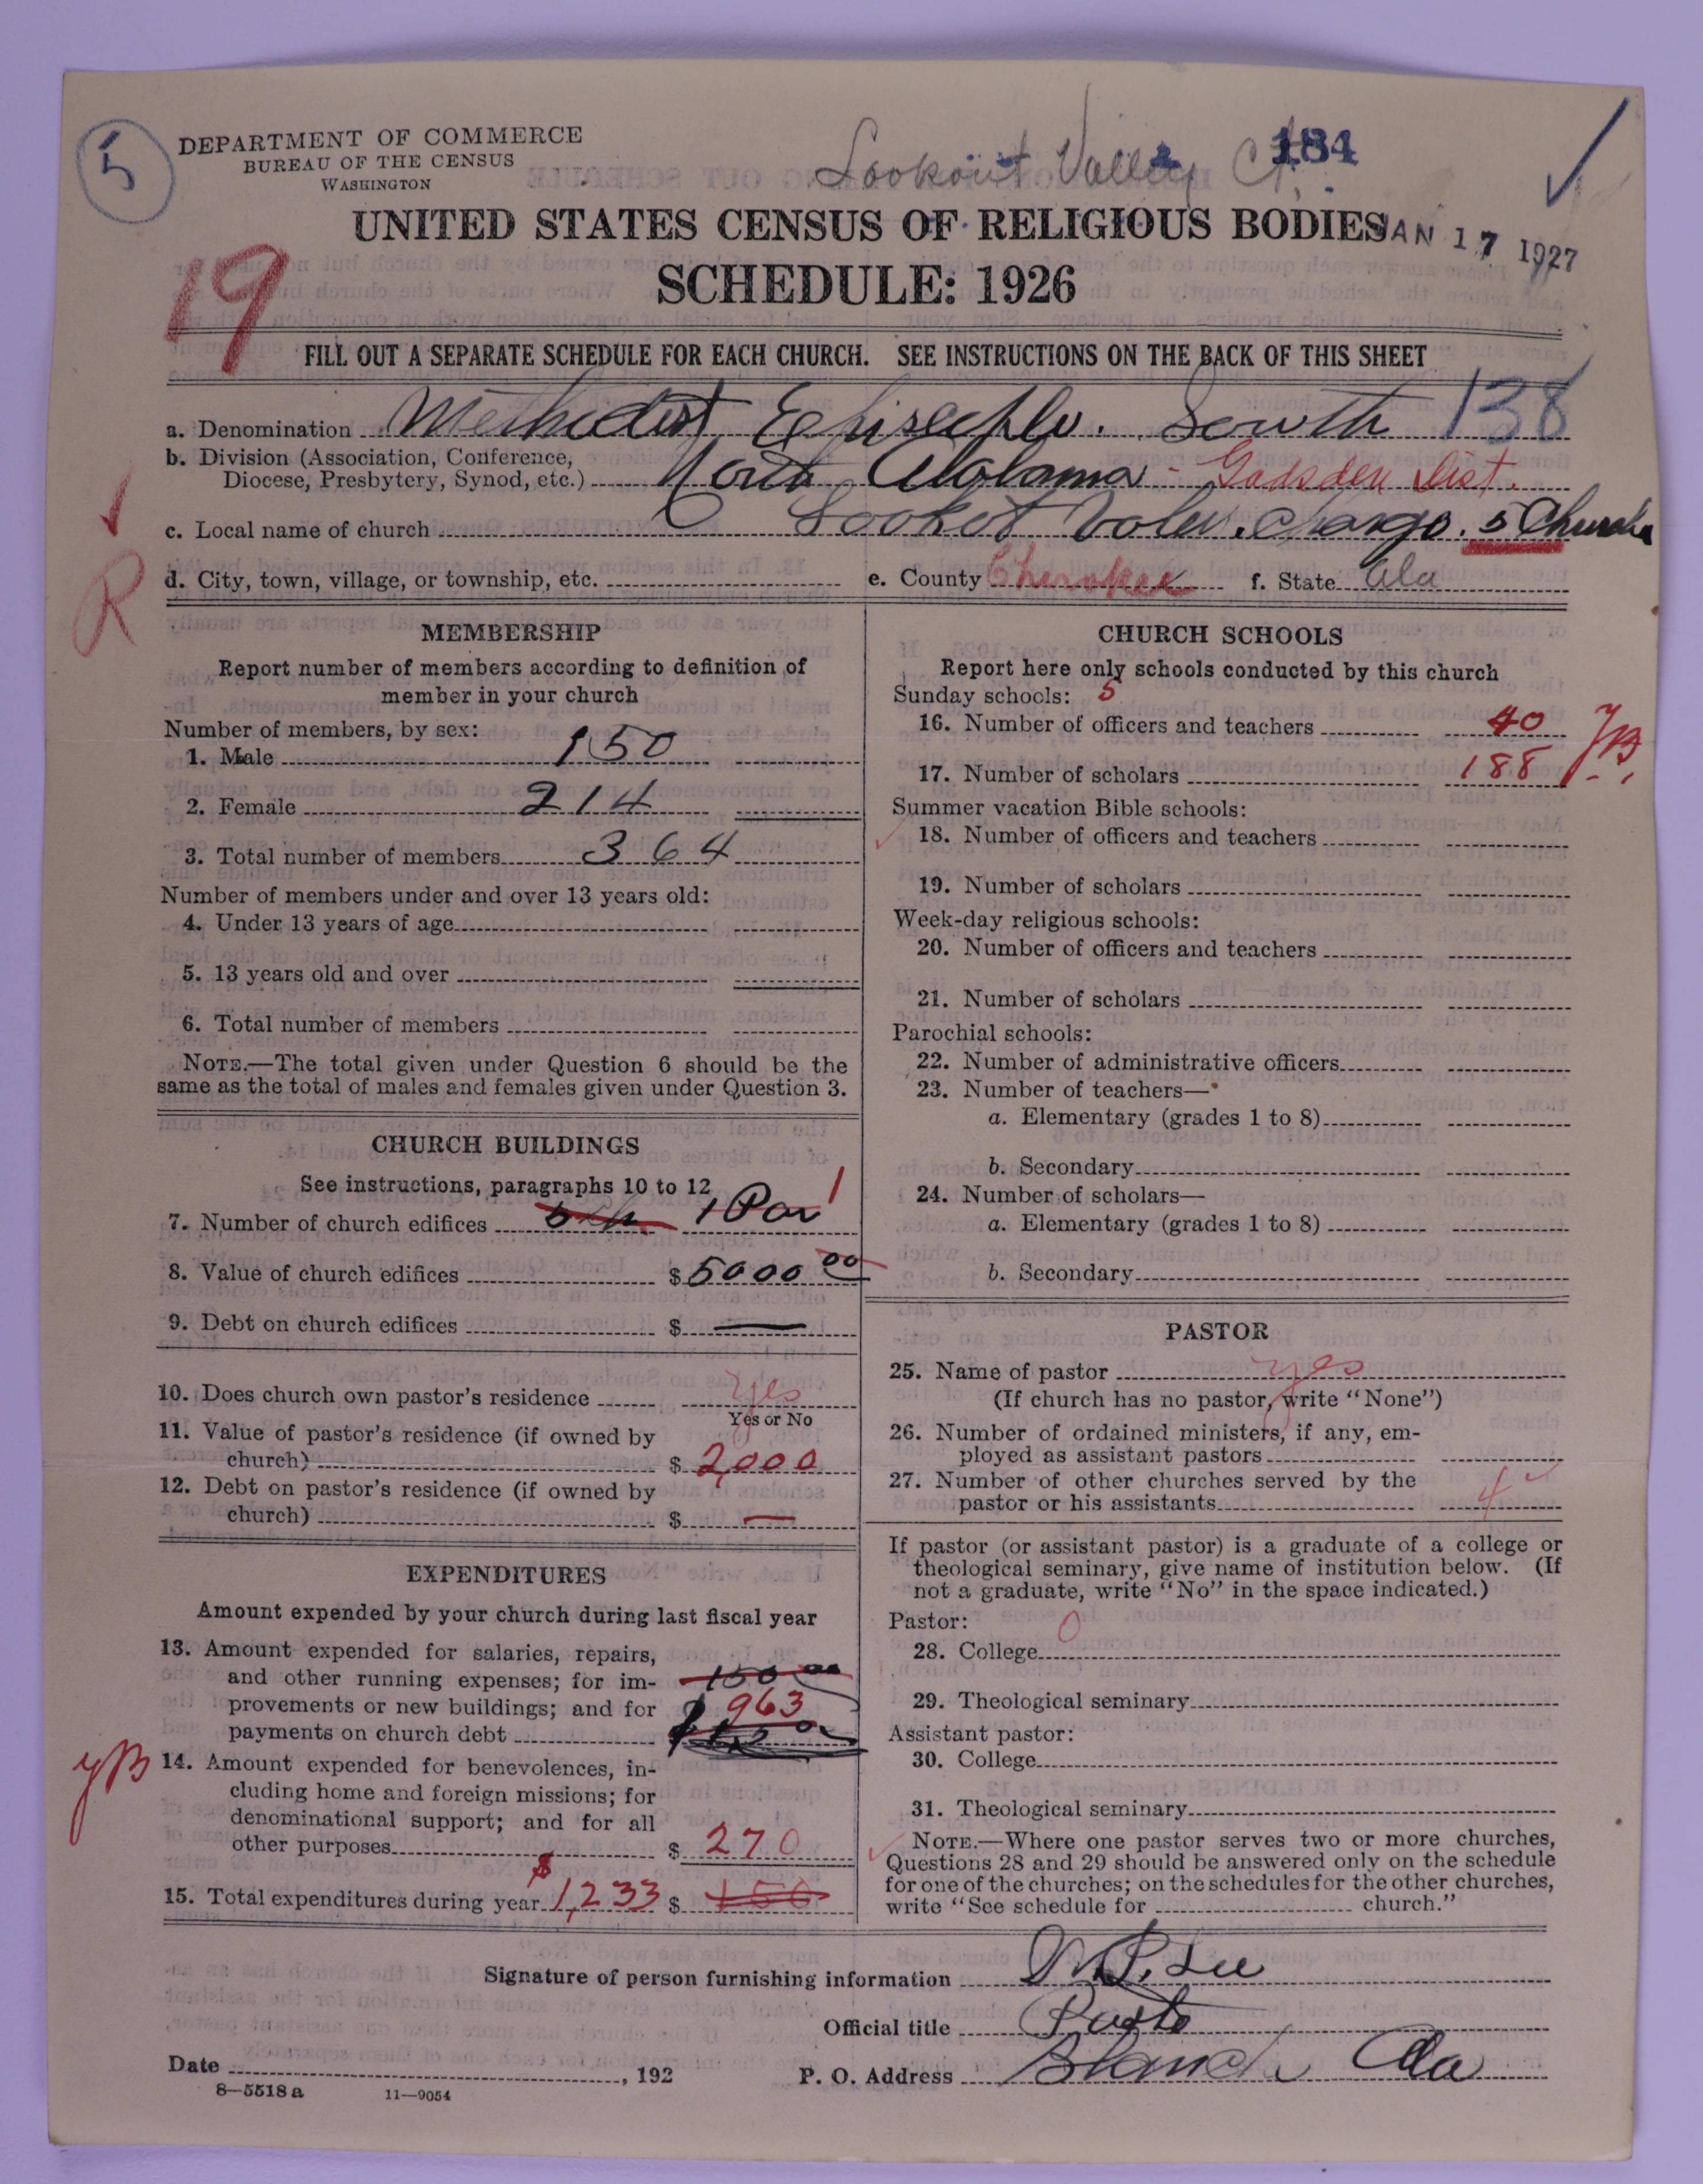 5
DEPARTMENT OF COMMERCE
BUREAU OF THE CENSUS
WASHINGTON
Lookout Valley Ct.
184
UNITED STATES CENSUS OF RELIGIOUS BODIES
JAN 17 1927
19
SCHEDULE: 1926
FILL OUT A SEPARATE SCHEDULE FOR EACH CHURCH. SEE INSTRUCTIONS ON THE BACK OF THIS SHEET
a. Denomination Methodist South 138
b. Division (Association, Conference,
Diocese, Presbytery, Synod, etc.) North Alabama - Gadsden Dist.
c. Local name of church 5 Churches
R
d. City, town, village, or township, etc. e. County Cherokee f. State Ala
MEMBERSHIP
Report number of members according to definition of
member in your church
Number of members, by sex:
1. Male 150
2. Female 214
3. Total number of members 364
Number of members under and over 13 years old:
4. Under 13 years of age
5. 13 years old and over
6. Total number of members
NOTE.—The total given under Question 6 should be the
same as the total of males and females given under Question 3.
CHURCH BUILDINGS
See instructions, paragraphs 10 to 12
7. Number of church edifices 5 ch 1 Par 1
8. Value of church edifices $ 5000 00
9. Debt on church edifices $ —
10. Does church own pastor's residence yes
Yes or No
11. Value of pastor's residence (if owned by
church) $ 2,000
12. Debt on pastor's residence (if owned by
church) $ —
EXPENDITURES
Amount expended by your church during last fiscal year
13. Amount expended for salaries, repairs,
and other running expenses; for im- 150 00
provements or new buildings; and for 963
payments on church debt
YB
14. Amount expended for benevolences, in-
cluding home and foreign missions; for
denominational support; and for all
other purposes $ 270
15. Total expenditures during year $1,233 $ 150
CHURCH SCHOOLS
Report here only schools conducted by this church
Sunday schools: 5
16. Number of officers and teachers 40
YB
17. Number of scholars 188
Summer vacation Bible schools:
18. Number of officers and teachers
19. Number of scholars
Week-day religious schools:
20. Number of officers and teachers
21. Number of scholars
Parochial schools:
22. Number of administrative officers
23. Number of teachers—
a. Elementary (grades 1 to 8)
b. Secondary
24. Number of scholars—
a. Elementary (grades 1 to 8)
b. Secondary
PASTOR
25. Name of pastor yes
(If church has no pastor, write "None")
26. Number of ordained ministers, if any, em-
ployed as assistant pastors
27. Number of other churches served by the
pastor or his assistants 4
If pastor (or assistant pastor) is a graduate of a college or
theological seminary, give name of institution below. (If
not a graduate, write "No" in the space indicated.)
Pastor: 0
28. College
29. Theological seminary
Assistant pastor:
30. College
31. Theological seminary
NOTE.—Where one pastor serves two or more churches,
Questions 28 and 29 should be answered only on the schedule
for one of the churches; on the schedules for the other churches,
write "See schedule for church."
Signature of person furnishing information Lee
Official title Pastor
Date , 192 P. O. Address Blanch Ala
8—5518 a 11—9054